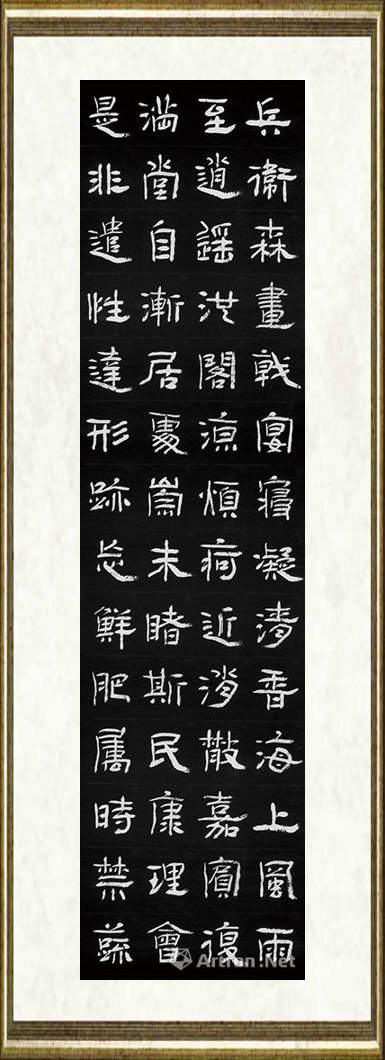 兵衞森畫戟宴寢凝清香海上風雨
至逍遥洪閣凉煩疴近消散嘉賓復
满堂自漸居處崇未睹斯民康理會
是非遣性達形跡忘鮮肥属時禁蔬
Artron.Net